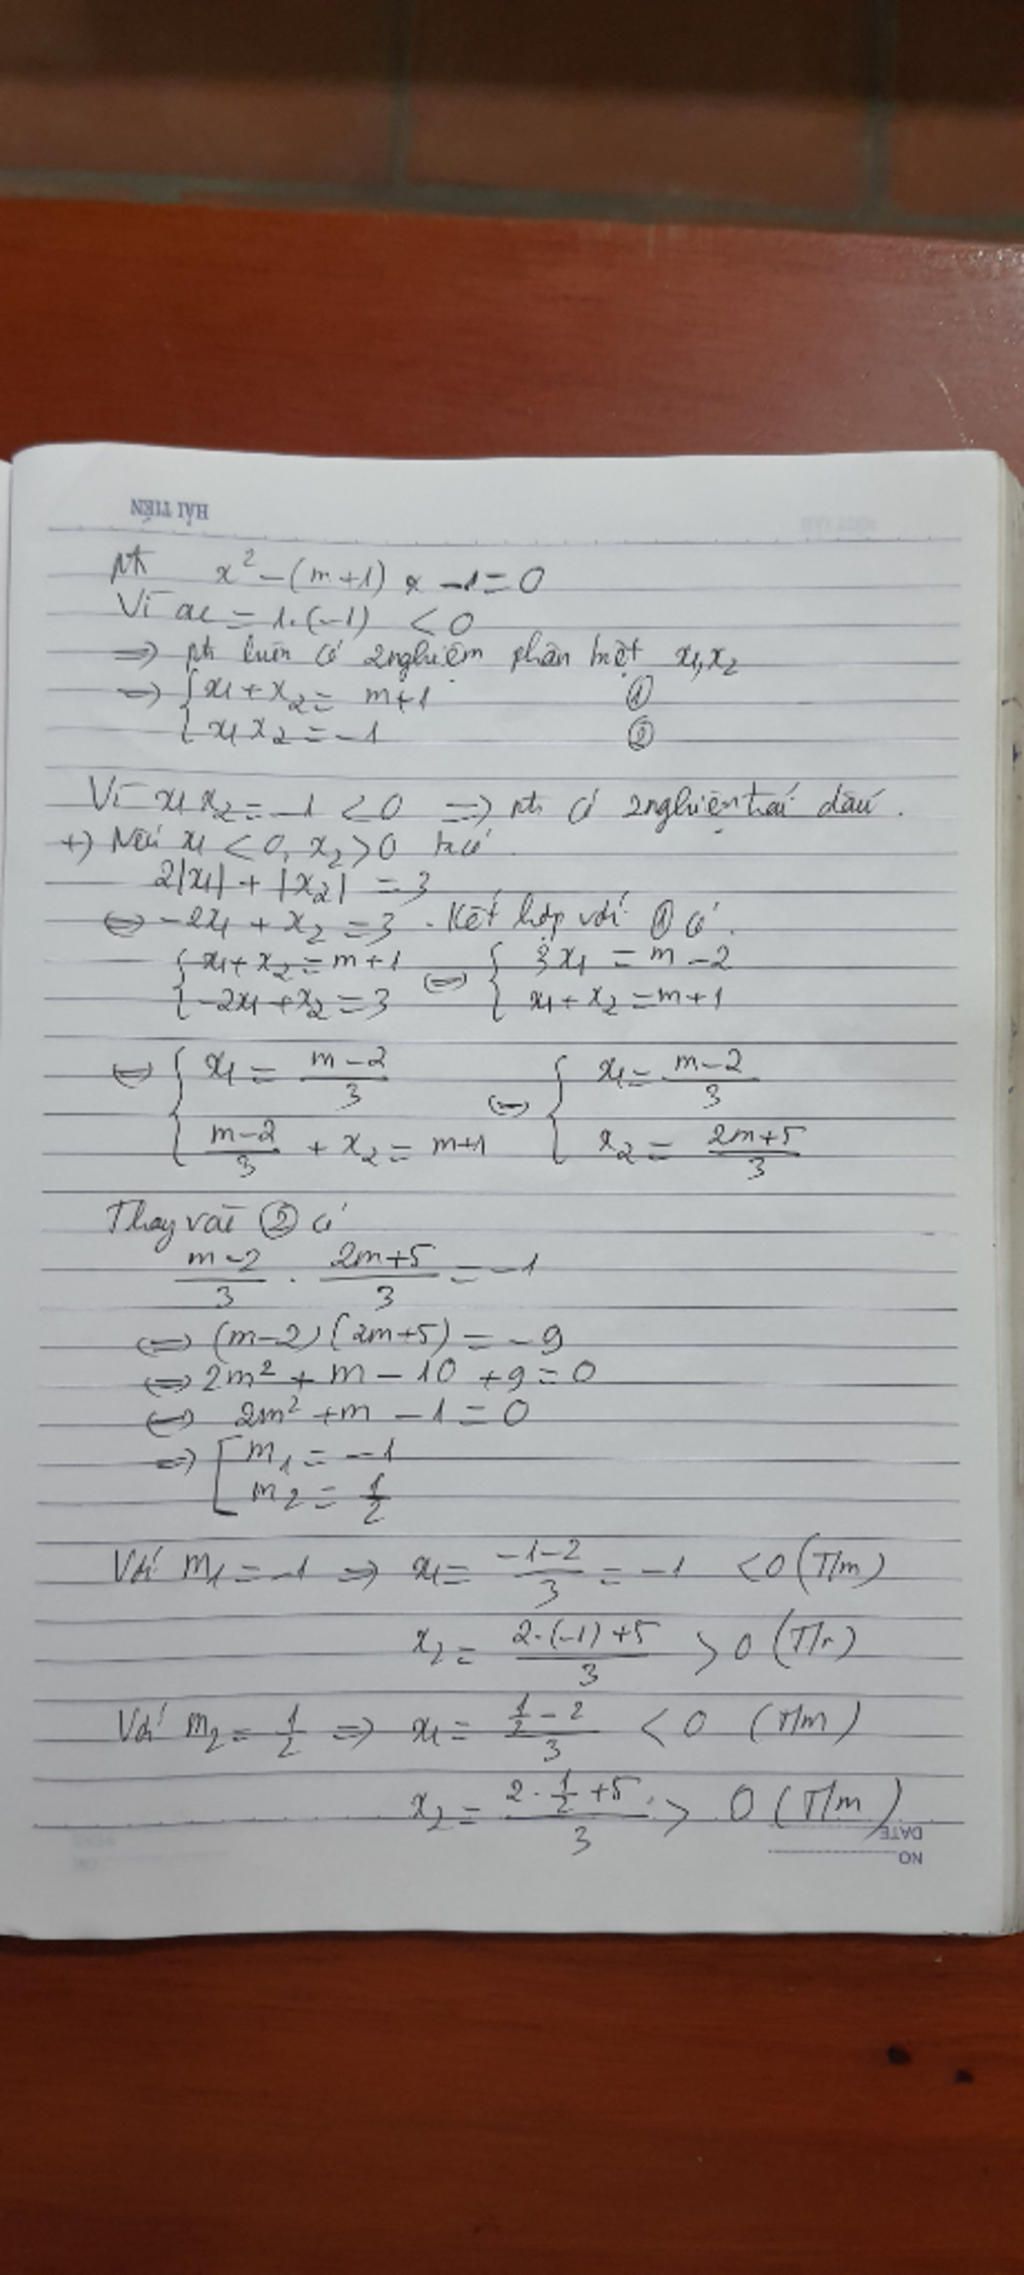 HẢI TIẾN
pt x² - (m+1) x - 1 = 0
Vì ac = 1.(-1) < 0
=> pt luôn có 2 nghiệm phân biệt x₁, x₂
=> { x₁ + x₂ = m+1 ①
{ x₁ x₂ = -1 ②
Vì x₁ x₂ = -1 < 0 => pt có 2 nghiệm trái dấu.
+) Nếu x₁ < 0, x₂ > 0 ta có
2|x₁| + |x₂| = 3
<=> -2x₁ + x₂ = 3. Kết hợp với ① có.
{ x₁ + x₂ = m+1 <=> { 3x₁ = m-2
{ -2x₁ + x₂ = 3 { x₁ + x₂ = m+1
<=> { x₁ = (m-2)/3 <=> { x₁ = (m-2)/3
{ (m-2)/3 + x₂ = m+1 { x₂ = (2m+5)/3
Thay vào ② có
(m-2)/3 . (2m+5)/3 = -1
<=> (m-2)(2m+5) = -9
<=> 2m² + m - 10 + 9 = 0
<=> 2m² + m - 1 = 0
=> [ m₁ = -1
[ m₂ = 1/2
Với m₁ = -1 => x₁ = (-1-2)/3 = -1 < 0 (T/m)
x₂ = (2.(-1)+5)/3 > 0 (T/m)
Với m₂ = 1/2 => x₁ = (1/2 - 2)/3 < 0 (T/m)
x₂ = (2.1/2 + 5)/3 > 0 (T/m)
DATE
NO